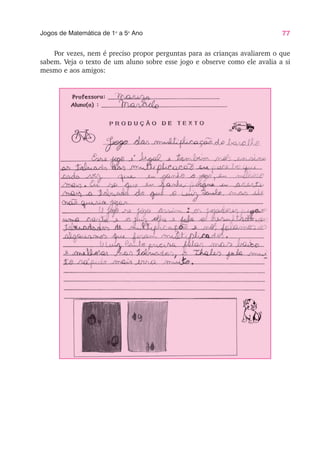 Jogos de Matemática de 1º a 5º Ano 77
Por vezes, nem é preciso propor perguntas para as crianças avaliarem o que
sabem. Veja o texto de um aluno sobre esse jogo e observe como ele avalia a si
mesmo e aos amigos:
Professora: Marize
Aluno(a) : Marcelo
PRODUÇÃO DE TEXTO
Jogo das multiplicação do baralho
Esse jogo é legal e também nos ensina
as tabuada das multiplicação eu percebi que
cada vez que eu ganho o jogo, eu
mas. Eu sei que eu ganhei porque eu acerto
mais a tabuada do que o Luiz Paulo, mas ele
não queria
O jogo se joga assim: os jogadores
uma carta e o juiz olha e fala o resultado
tabuadas de multiplicação e nós falamos
algarismos que foram multiplicados.
O Luiz Paulo precisa falar mais baixo
e melhorar nas tabuadas, o Thales fala mui
to rápido mais erra muito.